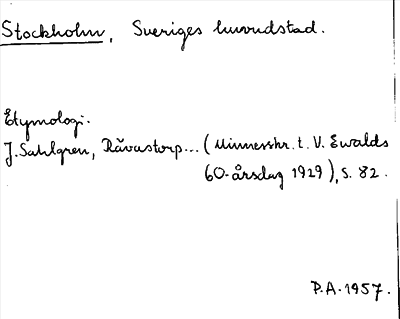 Stockholm, Sveriges huvudstad.
Etymologi.
J. Sahlgren, Råvastorp... (Minnesskr. t. V. Ewalds
60-årsdag 1929), s. 82.
P.A. 1957.